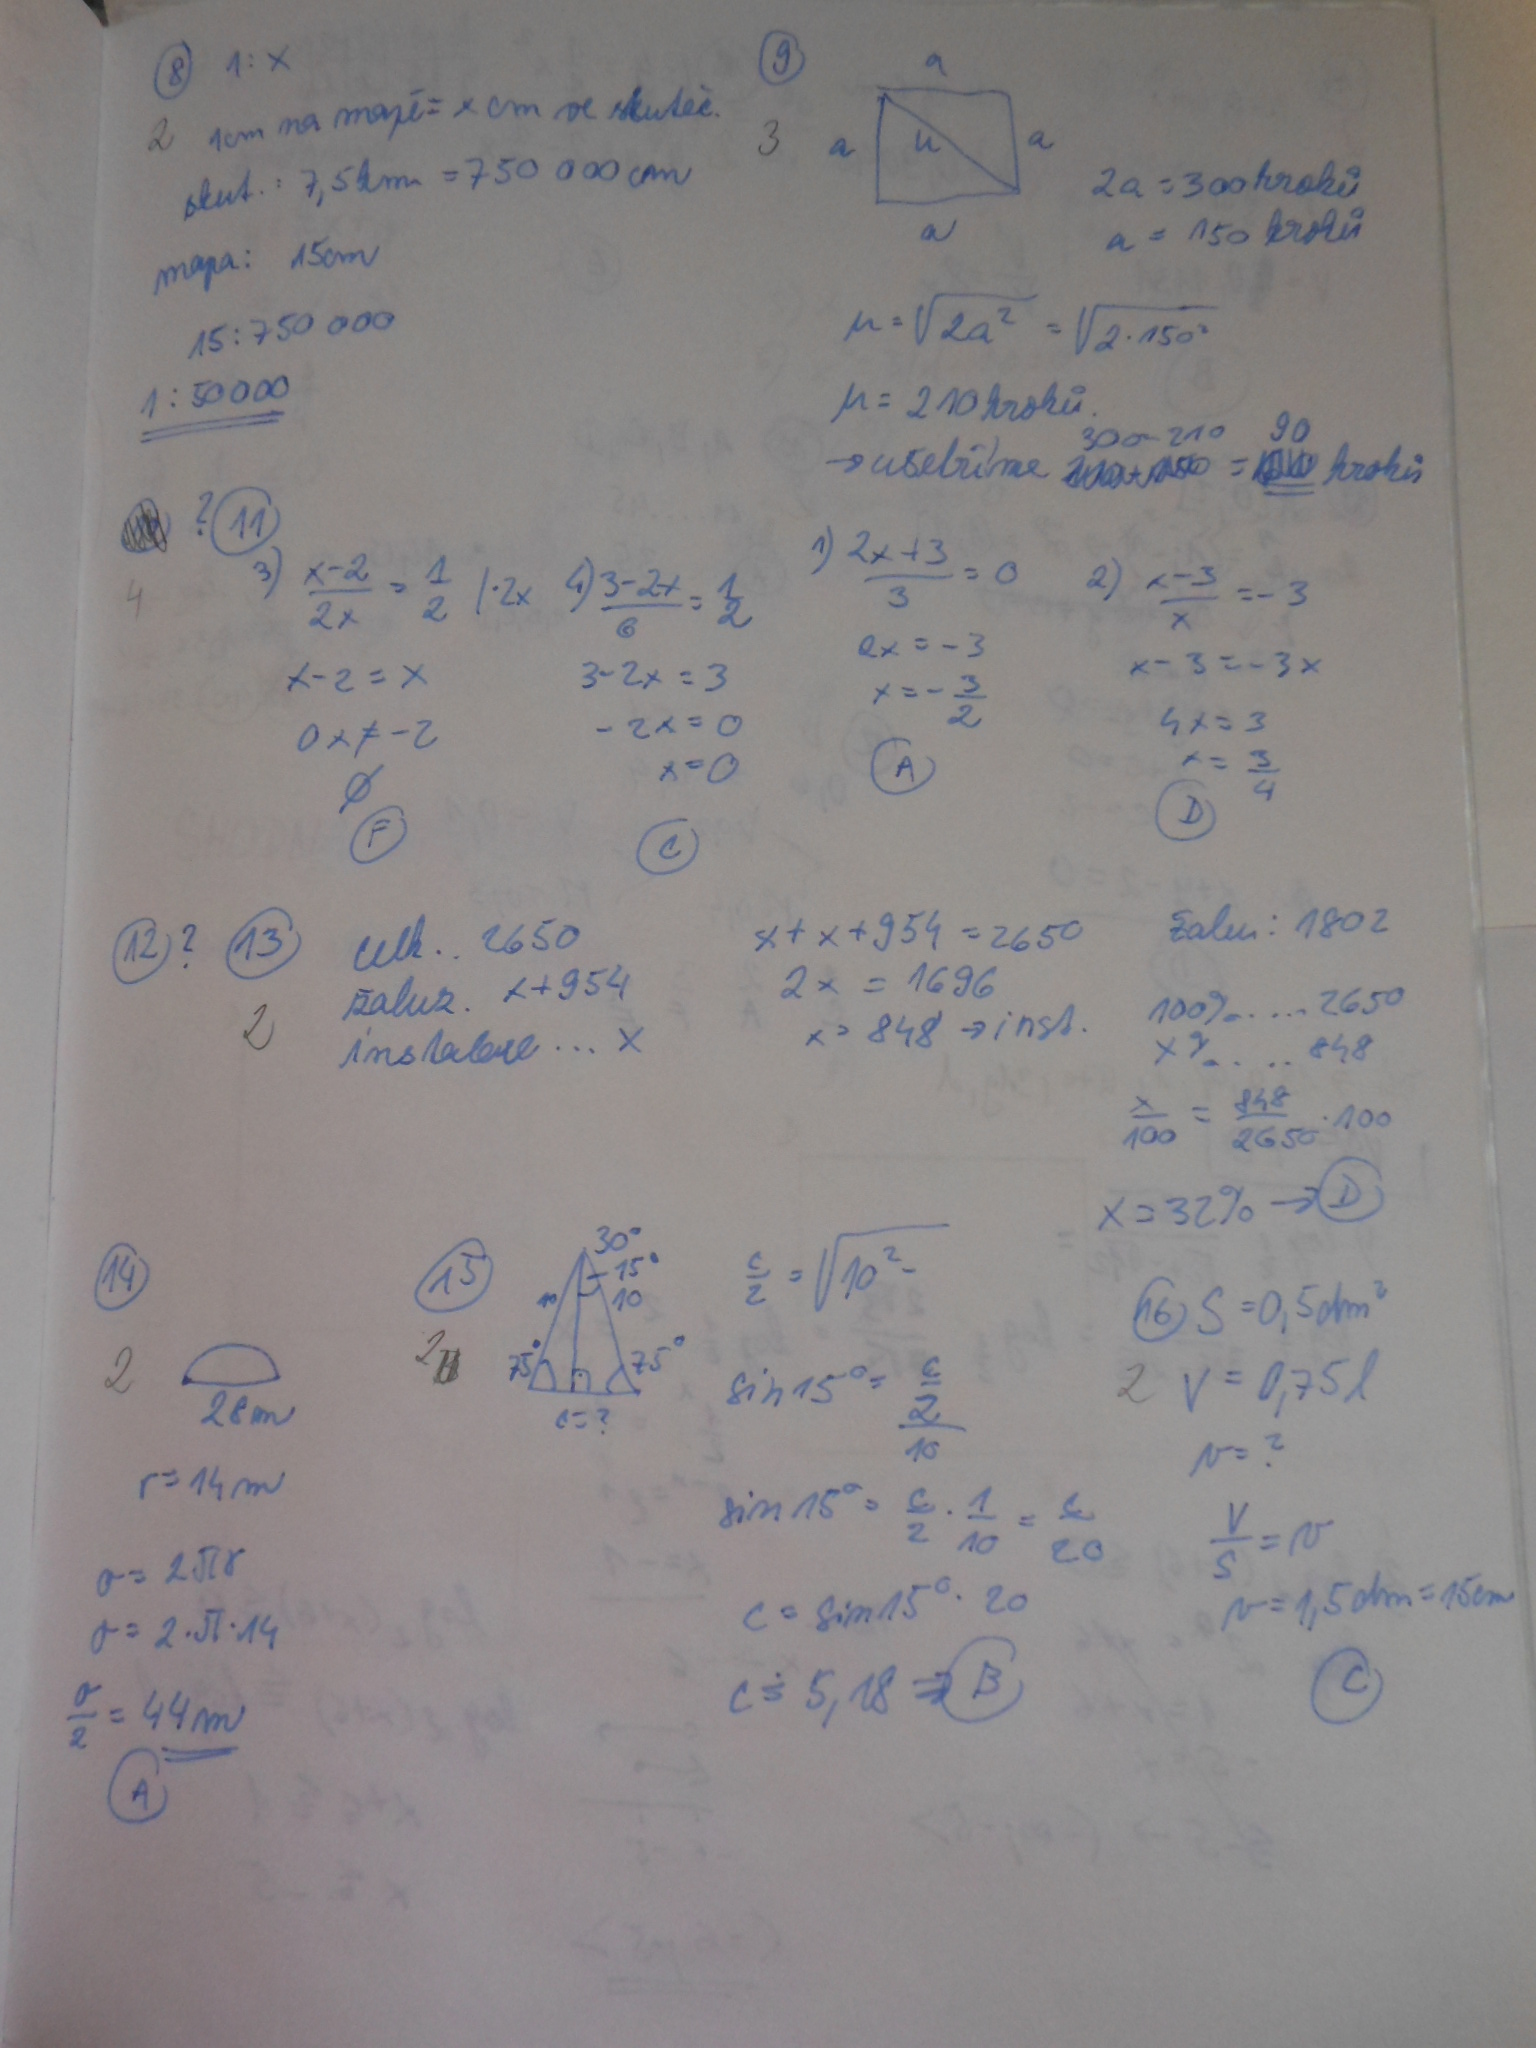 8 1:x
2 1cm na mapě = x cm ve skuteč.
skut.: 7,5km = 750 000 cm
mapa: 15cm
15:750 000
1:50000
9
3
a
a u a
a
2a = 300 kroků
a = 150 kroků
u = √2a² = √2·150²
u = 210 kroků.
300-210 90
→ ušetříme = kroků
? 11
4
3) x-2/2x = 1/2 |·2x
x-2 = x
0x ≠ -2
∅
F
4) 3-2x/6 = 1/2
3-2x = 3
-2x = 0
x = 0
C
1) 2x+3/3 = 0
2x = -3
x = -3/2
A
2) x-3/x = -3
x-3 = -3x
4x = 3
x = 3/4
D
12 ?
13
2
celk.. 2650
žaluz. x+954
instalace ... x
x+x+954 = 2650
2x = 1696
x = 848 → inst.
žaluz: 1802
100% ..... 2650
x% ..... 848
x/100 = 848/2650 · 100
x = 32% → D
14
2
28m
r = 14m
o = 2πr
o = 2·π·14
o/2 = 44m
A
15
2
30°
15°
10 10
75° 75°
c = ?
c/2 = √10² -
sin15° = c/2/10
sin15° = c/2 · 1/10 = c/20
c = sin15° · 20
c ≐ 5,18 ⇒ B
16 S = 0,5dm²
2 V = 0,75l
v = ?
V/S = v
v = 1,5dm = 15cm
C